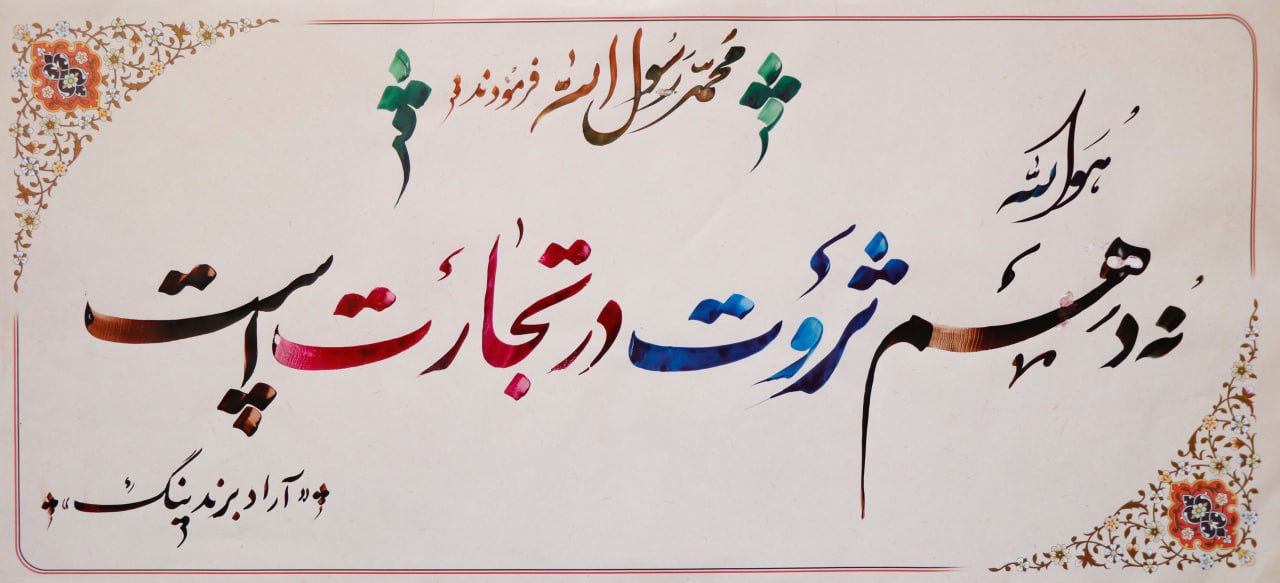 محمد رسول الله فرمودند
هو الله
نه دهم ثروت در تجارت است
«آراد برندینگ»